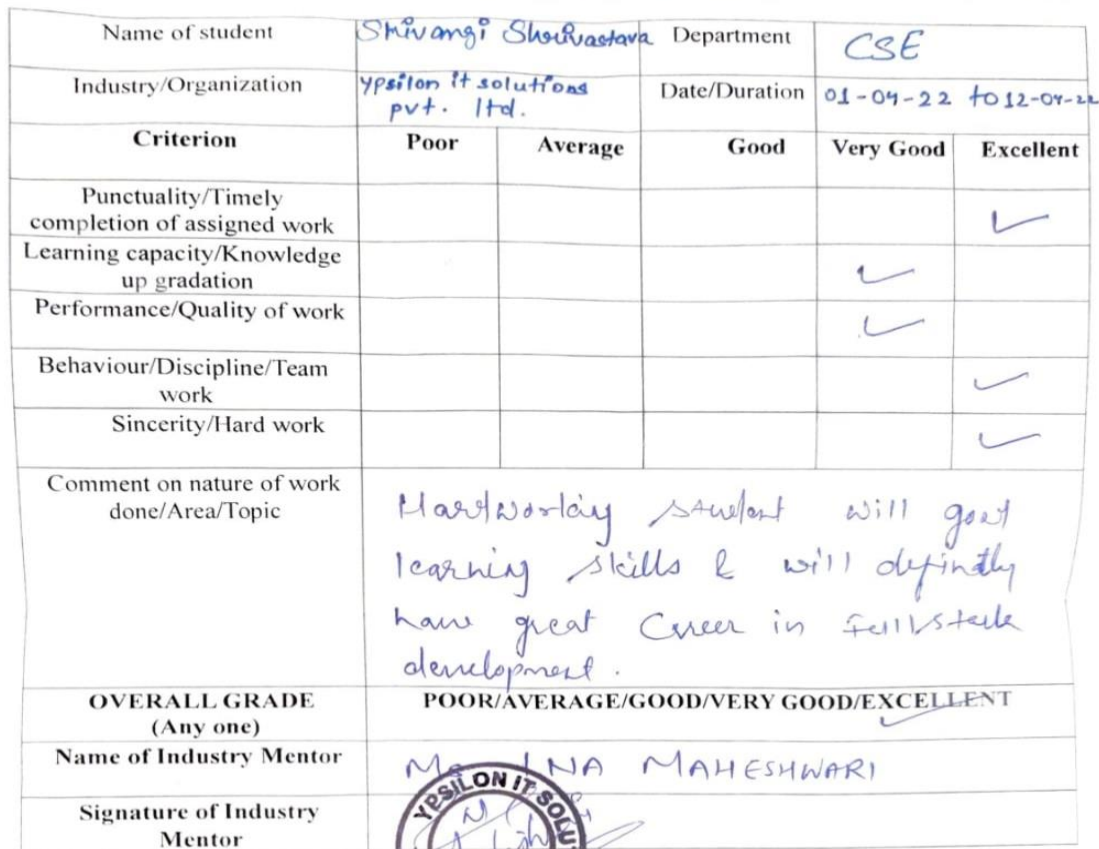 Name of student Shivangi Shrivastava Department CSE
Industry/Organization ypsilon it solutions Date/Duration 01-04-22 to 12-04-22
pvt. ltd.
Criterion Poor Average Good Very Good Excellent
Punctuality/Timely
completion of assigned work
Learning capacity/Knowledge
up gradation
Performance/Quality of work
Behaviour/Discipline/Team
work
Sincerity/Hard work
Comment on nature of work
done/Area/Topic
Hardworking student will good
learning skills & will definitly
have great Career in Fullstack
development.
OVERALL GRADE POOR/AVERAGE/GOOD/VERY GOOD/EXCELLENT
(Any one)
Name of Industry Mentor MAHESHWARI
YPSILON IT SOLU
Signature of Industry
Mentor